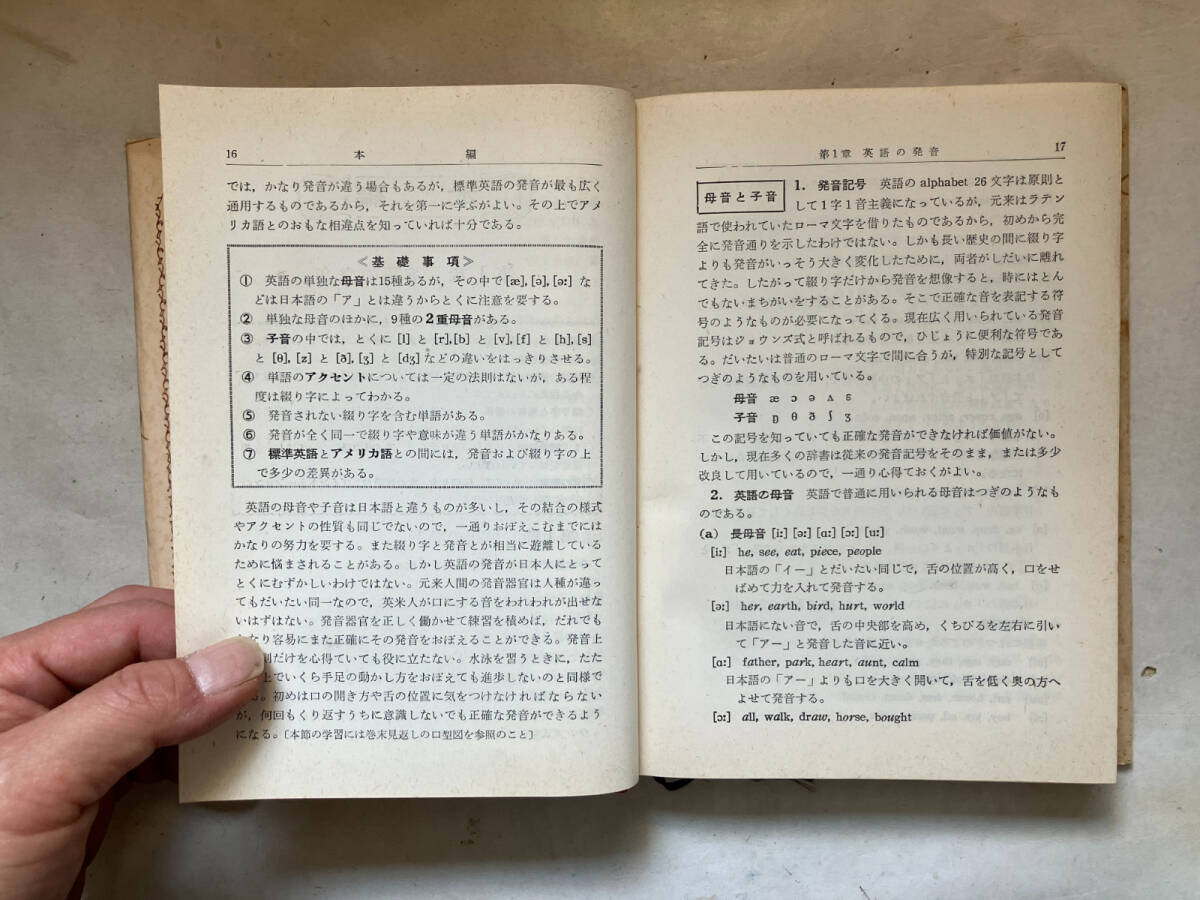 16 本編
では，かなり発音が違う場合もあるが，標準英語の発音が最も広く
通用するものであるから，それを第一に学ぶがよい。その上でアメ
リカ語とのおもな相違点を知っていれば十分である。
≪基礎事項≫
① 英語の単独な母音は15種あるが，その中で[æ]，[ə]，[ɔː] な
どは日本語の「ア」とは違うからとくに注意を要する。
② 単独な母音のほかに，9種の2重母音がある。
③ 子音の中では，とくに [l] と [r]，[b] と [v]，[f] と [h]，[s]
と [θ]，[z] と [ð]，[ʒ] と [dʒ] などの違いをはっきりさせる。
④ 単語のアクセントについては一定の法則はないが，ある程
度は綴り字によってわかる。
⑤ 発音されない綴り字を含む単語がある。
⑥ 発音が全く同一で綴り字や意味が違う単語がかなりある。
⑦ 標準英語とアメリカ語との間には，発音および綴り字の上
で多少の差異がある。
英語の母音や子音は日本語と違うものが多いし，その結合の様式
やアクセントの性質も同じでないので，一通りおぼえこむまでには
かなりの努力を要する。また綴り字と発音とが相当に遊離している
ために悩まされることがある。しかし英語の発音が日本人にとって
とくにむずかしいわけではない。元来人間の発音器官は人種が違っ
てもだいたい同一なので，英米人が口にする音をわれわれが出せな
いはずはない。発音器官を正しく働かせて練習を積めば，だれでも
なり容易にまた正確にその発音をおぼえることができる。発音上
則だけを心得ていても役に立たない。水泳を習うときに，ただ
上でいくら手足の動かし方をおぼえても進歩しないのと同様で
る。初めは口の開き方や舌の位置に気をつけなければならない
が，何回もくり返すうちに意識しないでも正確な発音ができるよう
になる。〔本節の学習には巻末見返しの口型図を参照のこと〕
第1章 英語の発音 17
母音と子音
1. 発音記号 英語の alphabet 26 文字は原則と
して1字1音主義になっているが，元来はラテン
語で使われていたローマ文字を借りたものであるから，初めから完
全に発音通りを示したわけではない。しかも長い歴史の間に綴り字
よりも発音がいっそう大きく変化したために，両者がしだいに離れ
てきた。したがって綴り字だけから発音を想像すると，時にはとん
でもないまちがいをすることがある。そこで正確な音を表記する符
号のようなものが必要になってくる。現在広く用いられている発音
記号はジョウンズ式と呼ばれるもので，ひじょうに便利な符号であ
る。だいたいは普通のローマ文字で間に合うが，特別な記号として
つぎのようなものを用いている。
母音 æ ɔ ə ʌ ɛ
子音 ŋ θ ð ʃ ʒ
この記号を知っていても正確な発音ができなければ価値がない。
しかし，現在多くの辞書は従来の発音記号をそのまま，または多少
改良して用いているので，一通り心得ておくがよい。
2. 英語の母音 英語で普通に用いられる母音はつぎのようなも
のである。
(a) 長母音 [iː] [əː] [ɑː] [ɔː] [uː]
[iː] he, see, eat, piece, people
日本語の「イー」とだいたい同じで，舌の位置が高く，口をせ
ばめて力を入れて発音する。
[əː] her, earth, bird, hurt, world
日本語にない音で，舌の中央部を高め，くちびるを左右に引い
て「アー」と発音した音に近い。
[ɑː] father, park, heart, aunt, calm
日本語の「アー」よりも口を大きく開いて，舌を低く奥の方へ
よせて発音する。
[ɔː] all, walk, draw, horse, bought